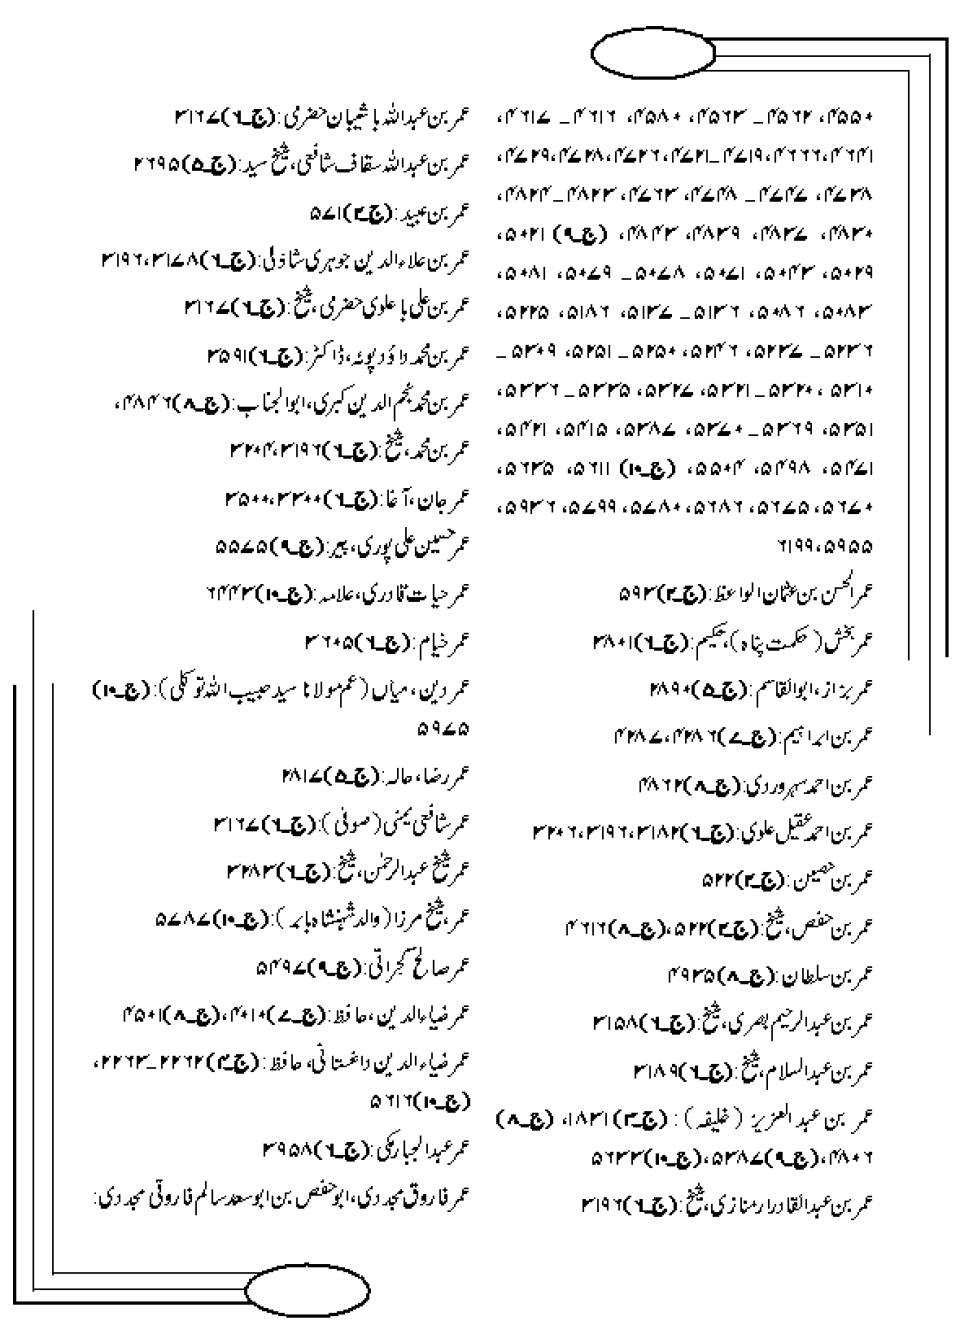 ۴۵۵۰، ۴۵۶۲ـ ۴۵۶۳، ۴۵۸۰، ۴۶۱۶ ـ ۴۶۱۷،
۴۶۴۱، ۴۶۶۶، ۴۷۱۹ـ ۴۷۲۱، ۴۷۲۶، ۴۷۲۸، ۴۷۲۹،
۴۷۳۸، ۴۷۴۷ ـ ۴۷۴۸، ۴۷۶۳، ۴۸۲۳ـ ۴۸۲۴،
۴۸۳۰، ۴۸۳۷، ۴۸۳۹، ۴۸۴۳، (ج ـ ۹) ۵۰۲۱،
۵۰۲۹، ۵۰۴۳، ۵۰۷۱، ۵۰۷۸ ـ ۵۰۷۹، ۵۰۸۱،
۵۰۸۳، ۵۰۸۶، ۵۱۳۶ ـ ۵۱۳۷، ۵۱۸۶، ۵۲۲۵،
۵۲۳۶ ـ ۵۲۳۷، ۵۲۴۶، ۵۲۵۰ـ ۵۲۵۱، ۵۳۰۹ ـ
۵۳۱۰، ۵۳۲۰ـ ۵۳۲۱، ۵۳۲۷، ۵۳۳۵ ـ ۵۳۳۶،
۵۳۵۱، ۵۳۶۹ ـ ۵۳۷۰، ۵۳۸۷، ۵۴۱۵، ۵۴۲۱،
۵۴۷۱، ۵۴۹۸، ۵۵۰۴، (ج ـ ۱۰) ۵۶۱۱، ۵۶۳۵،
۵۶۷۰، ۵۶۷۵، ۵۶۸۶، ۵۷۸۰، ۵۷۹۹، ۵۹۳۶،
۵۹۵۵، ۶۱۹۹
عمر الحسن بن عثمان الواعظ: (ج ـ ۲) ۵۹۳
عمر بخش (حکمت پناہ)، حکیم: (ج ـ ۶) ۳۸۰۱
عمر بزاز، ابوالقاسم: (ج ـ ۵) ۲۸۹۰
عمر بن ابراہیم: (ج ـ ۷) ۴۲۸۶، ۴۲۸۷
عمر بن احمد سہروردی: (ج ـ ۸) ۴۸۶۲
عمر بن احمد عقیل علوی: (ج ـ ۶) ۳۱۸۲، ۳۱۹۶، ۳۲۰۶
عمر بن حصین: (ج ـ ۲) ۵۲۲
عمر بن حفص، شیخ: (ج ـ ۲) ۵۲۲، (ج ـ ۸) ۴۶۱۶
عمر بن سلطان: (ج ـ ۸) ۴۹۳۵
عمر بن عبدالرحیم بصری، شیخ: (ج ـ ۶) ۳۱۵۸
عمر بن عبدالسلام، شیخ: (ج ـ ۶) ۳۱۸۹
عمر بن عبد العزیز (خلیفہ): (ج ـ ۳) ۱۸۳۱، (ج ـ ۸)
۴۸۰۶، (ج ـ ۹) ۵۳۸۷، (ج ـ ۱۰) ۵۶۳۳
عمر بن عبدالقادر ارمنازی، شیخ: (ج ـ ۶) ۳۱۹۶
عمر بن عبداللہ با شیبان حضرمی: (ج ـ ۶) ۳۱۶۷
عمر بن عبداللہ سقاف شافعی، شیخ سید: (ج ـ ۵) ۲۶۹۵
عمر بن عبید: (ج ـ ۲) ۵۷۱
عمر بن علاءالدین جوہری شاذلی: (ج ـ ۶) ۳۱۷۸، ۳۱۹۶
عمر بن علی با علوی حضرمی، شیخ: (ج ـ ۶) ۳۱۶۷
عمر بن محمد داؤد پوتہ، ڈاکٹر: (ج ـ ۶) ۳۵۹۱
عمر بن محمد نجم الدین کبری، ابوالجناب: (ج ـ ۸) ۴۸۴۶،
عمر بن محمد، شیخ: (ج ـ ۶) ۳۱۹۶، ۳۲۰۴
عمر جان، آغا: (ج ـ ۶) ۳۳۰۰، ۳۵۰۰
عمر حسین علی پوری، پیر: (ج ـ ۹) ۵۵۷۵
عمر حیات قادری، علامہ: (ج ـ ۱۰) ۶۴۴۳
عمر خیام: (ج ـ ۶) ۳۶۰۵
عمر دین، میاں (عم مولانا سید حبیب اللہ توکلی): (ج ـ ۱۰)
۵۹۷۵
عمر رضا، حالہ: (ج ـ ۵) ۲۸۱۷
عمر شافعی یمنی (صوفی): (ج ـ ۶) ۳۱۶۷
عمر شیخ عبدالرحمٰن، شیخ: (ج ـ ۶) ۳۲۸۳
عمر، شیخ مرزا (والد شہنشاہ بابر): (ج ـ ۱۰) ۵۷۸۷
عمر صالح گجراتی: (ج ـ ۹) ۵۴۹۷
عمر ضیاءالدین، حافظ: (ج ـ ۷) ۴۰۱۰، (ج ـ ۸) ۴۵۰۱
عمر ضیاءالدین داغستانی، حافظ: (ج ـ ۴) ۲۲۶۲ـ ۲۲۶۳،
(ج ـ ۱۰) ۵۶۱۶
عمر عبدالجبار مکی: (ج ـ ۶) ۳۹۵۸
عمر فاروق مجددی، ابوحفص بن ابوسعد سالم فاروقی مجددی: